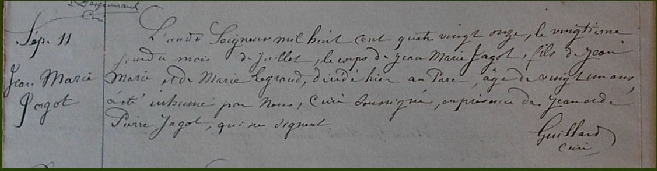 Curé
Sep. 11
Jean Marie
Jagot
L'an du Seigneur mil huit cent quatre vingt onze, le vingtième
jour du mois de Juillet, le corps de Jean Marie Jagot, fils de Jean
Marie et de Marie Legrand, décédé hier au Parc, âgé de vingt un ans,
a été inhumé par Nous, Curé soussigné, en présence de Jean et de
Pierre Jagot, qui ne signent
Guillard
Curé